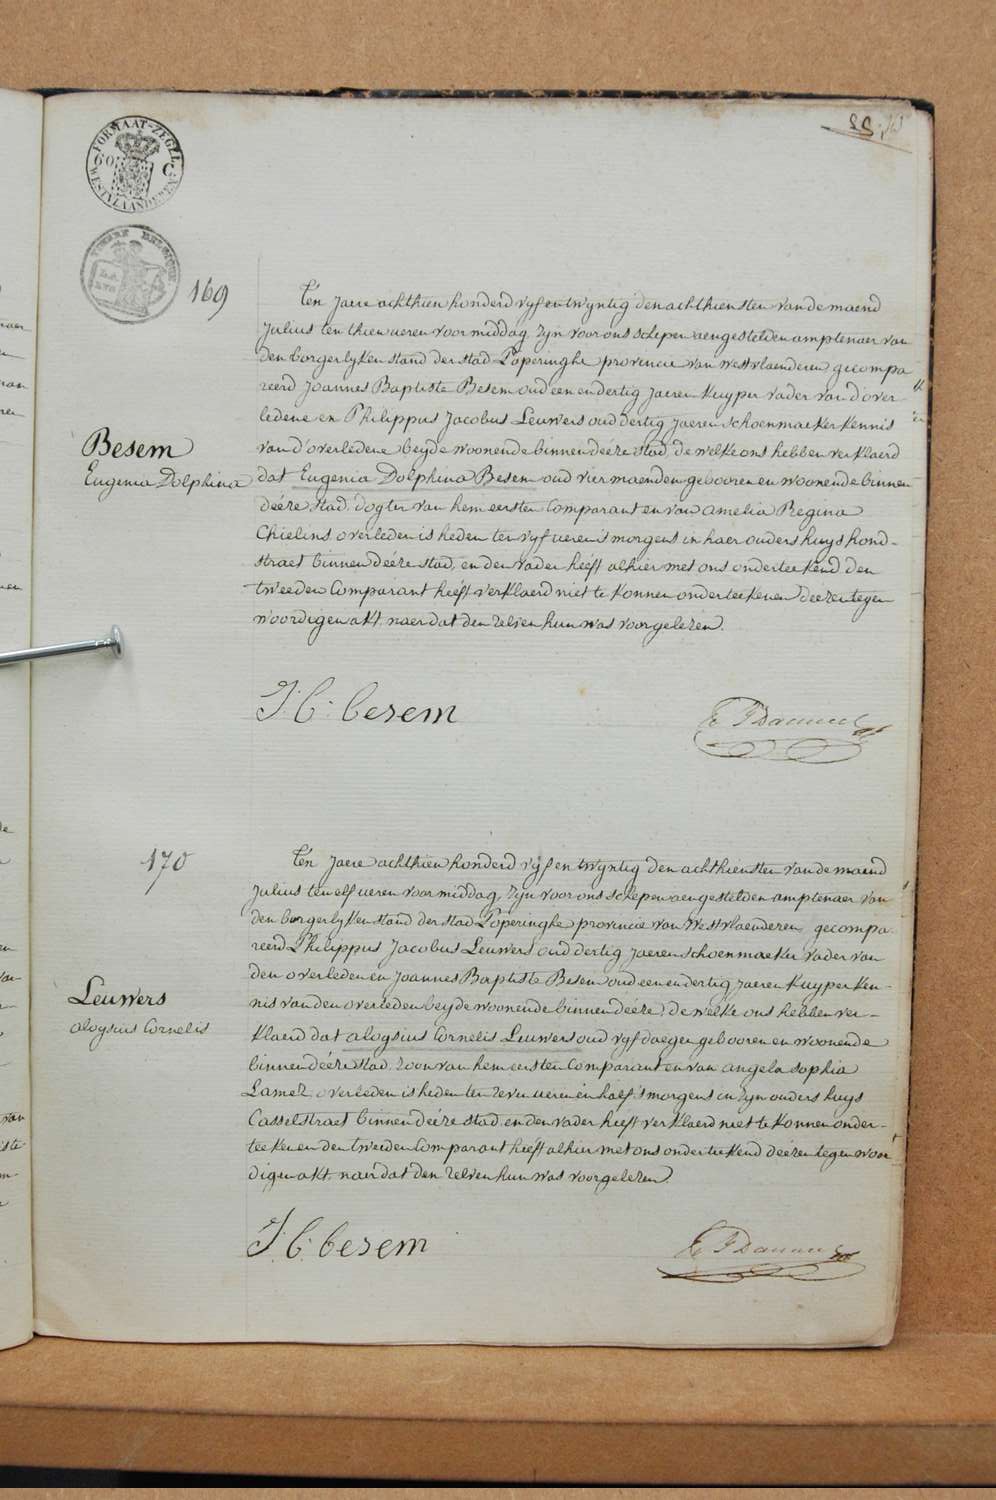 FORMAAT-ZEGEL
60 C
WESTVLAANDEREN
TIMBRE BELGIQUE
169
Ten Jaere achthien honderd vyf en twyntig den achthiensten van de maend
Julius ten thien ueren voor middag, zyn voor ons schepen aengestelden amptenaer van
den borgerlyken stand der stad Poperinghe provincie van Westvlaenderen gecompa
reerd Joannes Baptiste Besem oud een en dertig Jaeren kuyper vader van d'over
ledene en Philippus Jacobus Leuwers oud dertig Jaeren schoenmaeker kennis
van d'overledene beyde woonende binnen déeze stad, de welke ons hebben verklaerd
Besem
Eugenia Dolphina
dat Eugenia Dolphina Besem oud vier maenden gebooren en woonende binnen
déeze stad, dogter van hem eersten Comparant en van amelia Regina
Ghielins overleden is heden ten vyf ueren s'morgens in haer ouders huys hond-
straet binnen déeze stad, en den vader heeft alhier met ons onderteekend den
tweeden Comparant heeft verklaerd niet te konnen onderteekenen deezen tegen
woordigen akt, naer dat den zelven hun was voorgelezen.
J: b: besem
170
Ten Jaere achthien honderd vyf en twyntig den achthiensten van de maend
Julius ten elf ueren voor middag, zyn voor ons schepen aengestelden amptenaer van
den borgerlyken stand der stad Poperinghe provincie van Westvlaenderen, gecompa-
reerd Philippus Jacobus Leuwers oud dertig Jaeren schoenmaeker vader van
den overleden en Joannes Baptiste Besem oud een en dertig Jaeren kuyper ken-
nis van den overleden beyde woonende binnen déeze, de welke ons hebben ver-
Leuwers
aloysius Cornelis
klaerd dat aloysius Cornelis Leuwers oud vyf daegen gebooren en woonende
binnen déeze stad, zoon van hem eersten Comparant en van angela sophia
Lamez, overleden is heden ten zeven ueren en half s'morgens in zyn ouders huys
Casselstraet binnen déeze stad, en den vader heeft verklaerd niet te konnen onder-
teekenen den tweeden Comparant heeft alhier met ons onderteekend déezen tegenwoor
digen akt, naer dat den zelven hun was voorgelezen.
J: b: besem